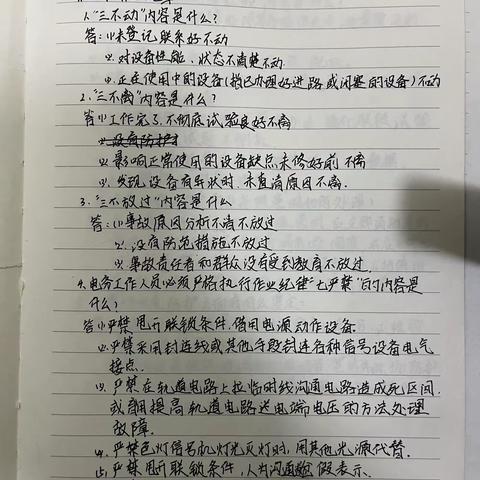 1."三不动"内容是什么?
答:(1)未登记联系好不动
(2).对设备性能、状态不清楚不动.
(3).正在使用中的设备(指已办理好进路或闭塞的设备)不动
2."三不离"内容是什么?
答(1)工作完了,不彻底试验良好不离
(2).影响正常使用的设备缺点未修好前不离
(3).发现设备有异状时,未查清原因不离.
3."三不放过"内容是什么
答:(1)事故原因分析不清不放过
(2).没有防范措施不放过
(3).事故责任者和群众没有受到教育不放过.
4.电务工作人员必须严格执行作业纪律"七严禁"的内容是
什么?
答(1)严禁甩开联锁条件,借用电源动作设备.
(2)严禁采用封连线或其他手段封连各种信号设备电气
接点.
(3).严禁在轨道电路上拉临时线沟通电路造成死区间,
或调提高轨道电路送电端电压的方法处理
故障.
(4).严禁色灯信号机灯光灭灯时,用其他光源代替.
(5).严禁甩开联锁条件,人为沟通 假表示.